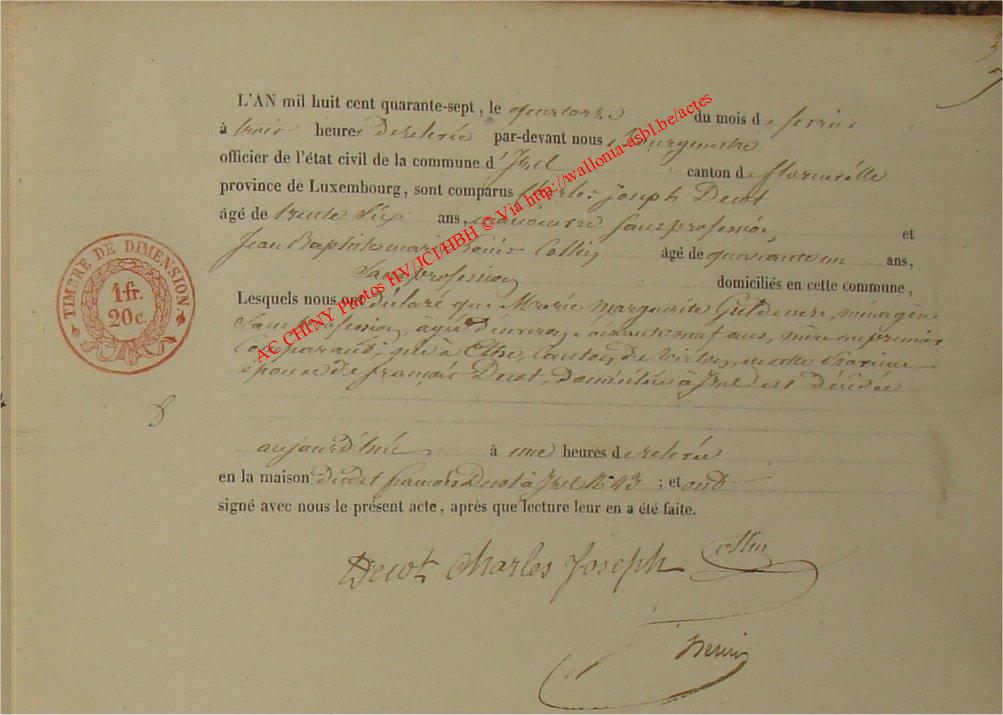 L'AN mil huit cent quarante-sept, le quatorze du mois de fevrier
à trois heures de relevée par-devant nous Bourgmestre
officier de l'état civil de la commune d'Izel canton de florenville
province de Luxembourg, sont comparus Charles Joseph Decot
âgé de trente Six ans, manoeuvre Sans profession et
Jean Baptiste marie Collin âgé de quarante un ans,
Sans profession domiciliés en cette commune,
Lesquels nous ont déclaré que Marie marguerite ménagère
Sans profession, agée d'environ ans, mère au premier
Comparant, née à Ethe, Canton de Virton,
epouse de françois Decot, Domiciliée à Izel est décédée
8
aujourd'hui à une heures de relevée
en la maison dudit francois Decot à Izel N° 43 ; et ont
signé avec nous le présent acte, après que lecture leur en a été faite.
Decot Charles Joseph Collin
TIMBRE DE DIMENSION
1 fr.
20 c.
AC CHINY Photos HV/JCI/HBH © Via http://wallonia-asbl.be/actes